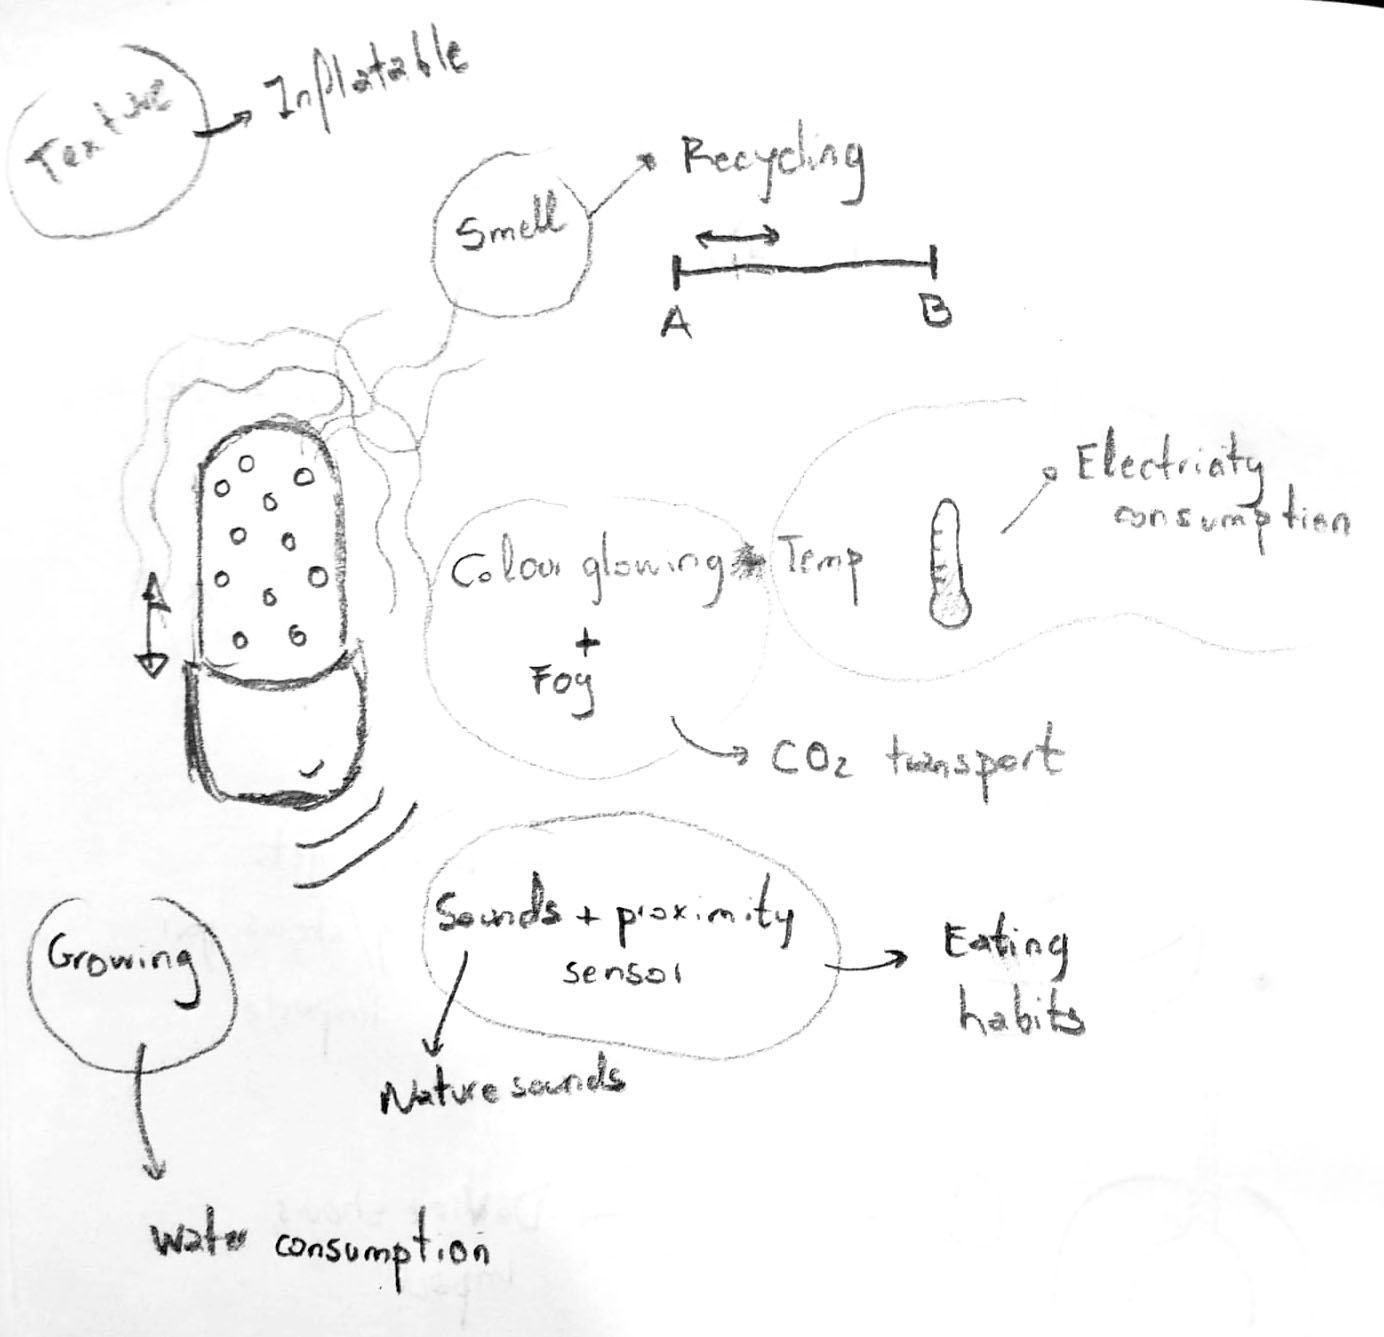 Texture
Inflatable
Smell
Recycling
A
B
Electricity
consumption
Colour glowing
Temp
+
Fog
CO2 transport
Sounds + proximity
sensor
Eating
habits
Growing
Nature sounds
Water consumption